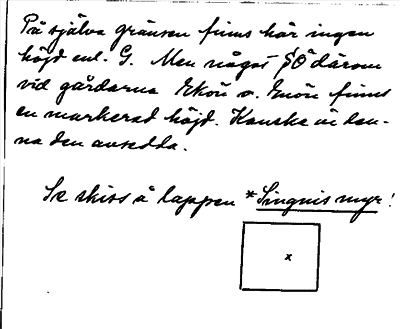 På själva gränsen finns här ingen
höjd enl. G. Men något SO därom
vid gårdarna Ekön o. Enön finns
en markerad höjd. Kanske är den-
na den avsedda.
Se skiss å lappen *Singnis myr!
x